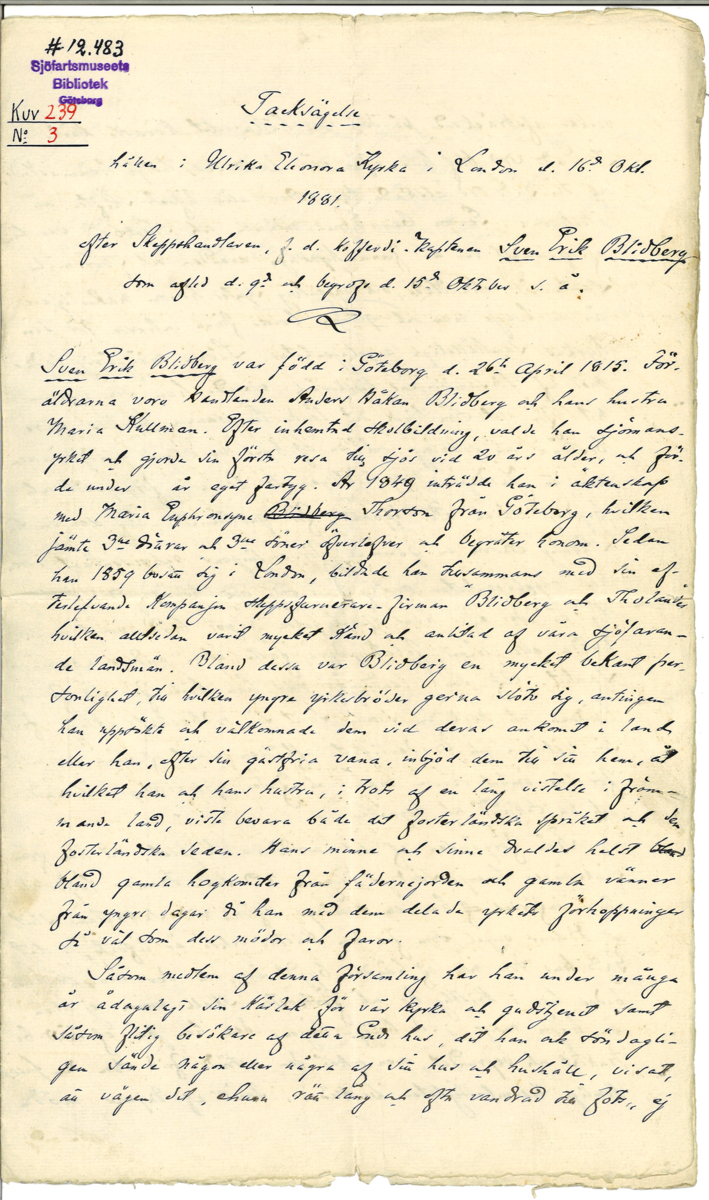 # 12.483
Sjöfartsmuseets
Bibliotek
Göteborg
Kuv 239
No 3
Tacksägelse
hållen i Ulrika Eleonora Kyrka i London d. 16de Okt.
1881.
efter Skeppshandlaren, f. d. Kofferdi-Kaptenen Sven Erik Blidberg
som afled d. 9de och begrofs d. 15de Oktober s. å.
Sven Erik Blidberg var född i Göteborg d. 26th April 1815. För-
äldrarna voro Handlanden Anders Håkan Blidberg och hans hustru
Maria Kullman. Efter inhemtad skolbildning, valde han sjömans-
yrket och gjorde sin första resa till sjös vid 20 års ålder, och för-
de under år eget fartyg. År 1849 inträdde han i äktenskap
med Maria Euphrosyne Blidberg Thorson från Göteborg, hvilken
jämte 3ne döttrar och 3ne söner öfverlefver och begråter honom. Sedan
han 1859 bosatt sig i London, bildade han tillsammans med sin ef-
terlefvande Kompanjon skeppsfurnerare-firman "Blidberg och Tholander"
hvilken alltsedan varit mycket känd och anlitad af våra sjöfaran-
de landsmän. Bland dessa var Blidberg en mycket bekant per-
sonlighet, till hvilken yngre yrkesbröder gerna slöto sig, antingen
han uppsökte och välkomnade dem vid deras ankomst i land
eller han, efter sin gästfria vana, inbjöd dem till sitt hem, åt
hvilket han och hans hustru, i trots af en lång vistelse i främ-
mande land, visste bevara både det fosterländska språket och den
fosterländska sedan. Hans minne och sinne dvaldes helst bland
bland gamla hogkomster från fädernejorden och gamla vänner
från yngre dagar då han med dem delade yrkets förhoppningar
så väl som dess mödor och faror.
Såsom medlem af denna församling har han under många
år ådagalagt sin kärlek för vår kyrka och gudstjenst samt
såsom flitig besökare af detta Guds hus, dit han ock söndagli-
gen sände någon eller några af sitt hus och hushåll, visat,
att vägen dit, ehuru rätt lång och ofta vandrad till fots, ej